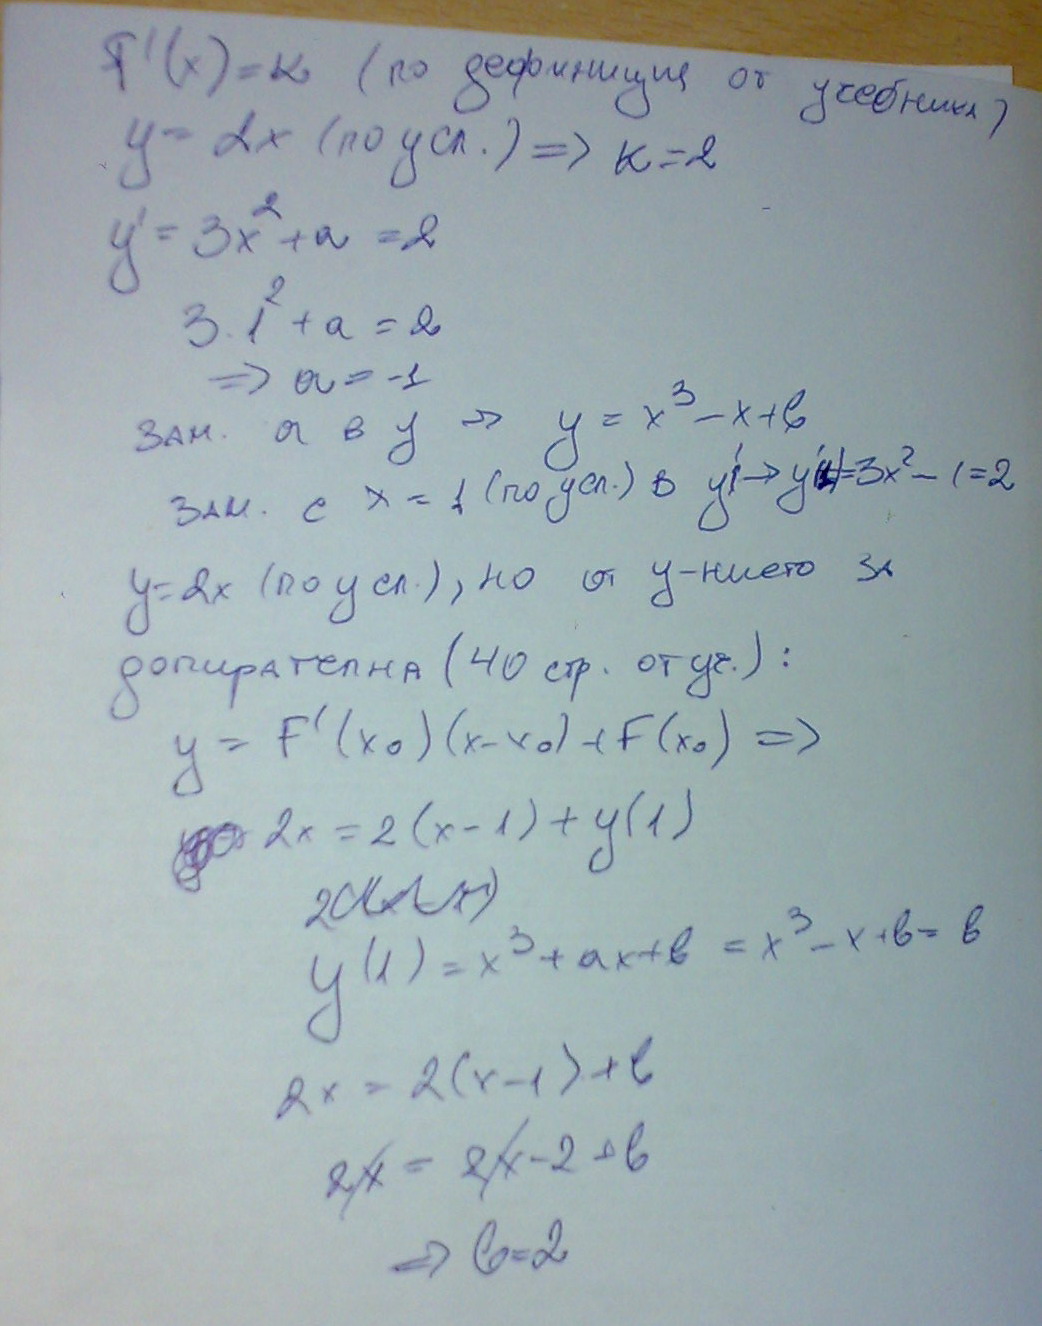 F'(x)=k (по дефиниция от учебника)
y= 2x (по усл.) => k=2
y'= 3x²+a =2
3.1²+a=2
=> a=-1
зам. a в y → y = x³-x+b
зам. с x=1 (по усл.) в y' → y'(1)=3x²-1=2
y=2x (по усл.), но от у-нието за
допирателна (40 стр. от уч.):
y = F'(x₀)(x-x₀)+F(x₀) =>
2x=2(x-1)+y(1)
y(1)=x³+ax+b = x³-x+b= b
2x = 2(x-1)+b
2x = 2x-2+b
=> b=2